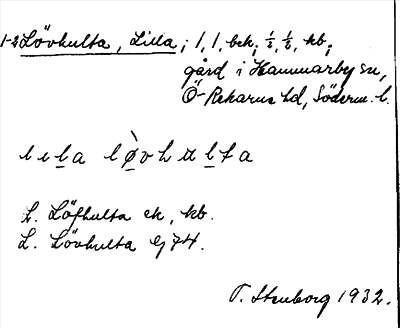 1-2 Lövhulta, Lilla; 1, 1, bek; ½, ½, kb;
gård i Hammarby sn,
Ö-Rekarne hd, Söderm. l.
lɩla lø̀vhulta
L. Löfhulta ek, kb.
L. Lövhulta Gj 74.
T. Stenborg 1932.